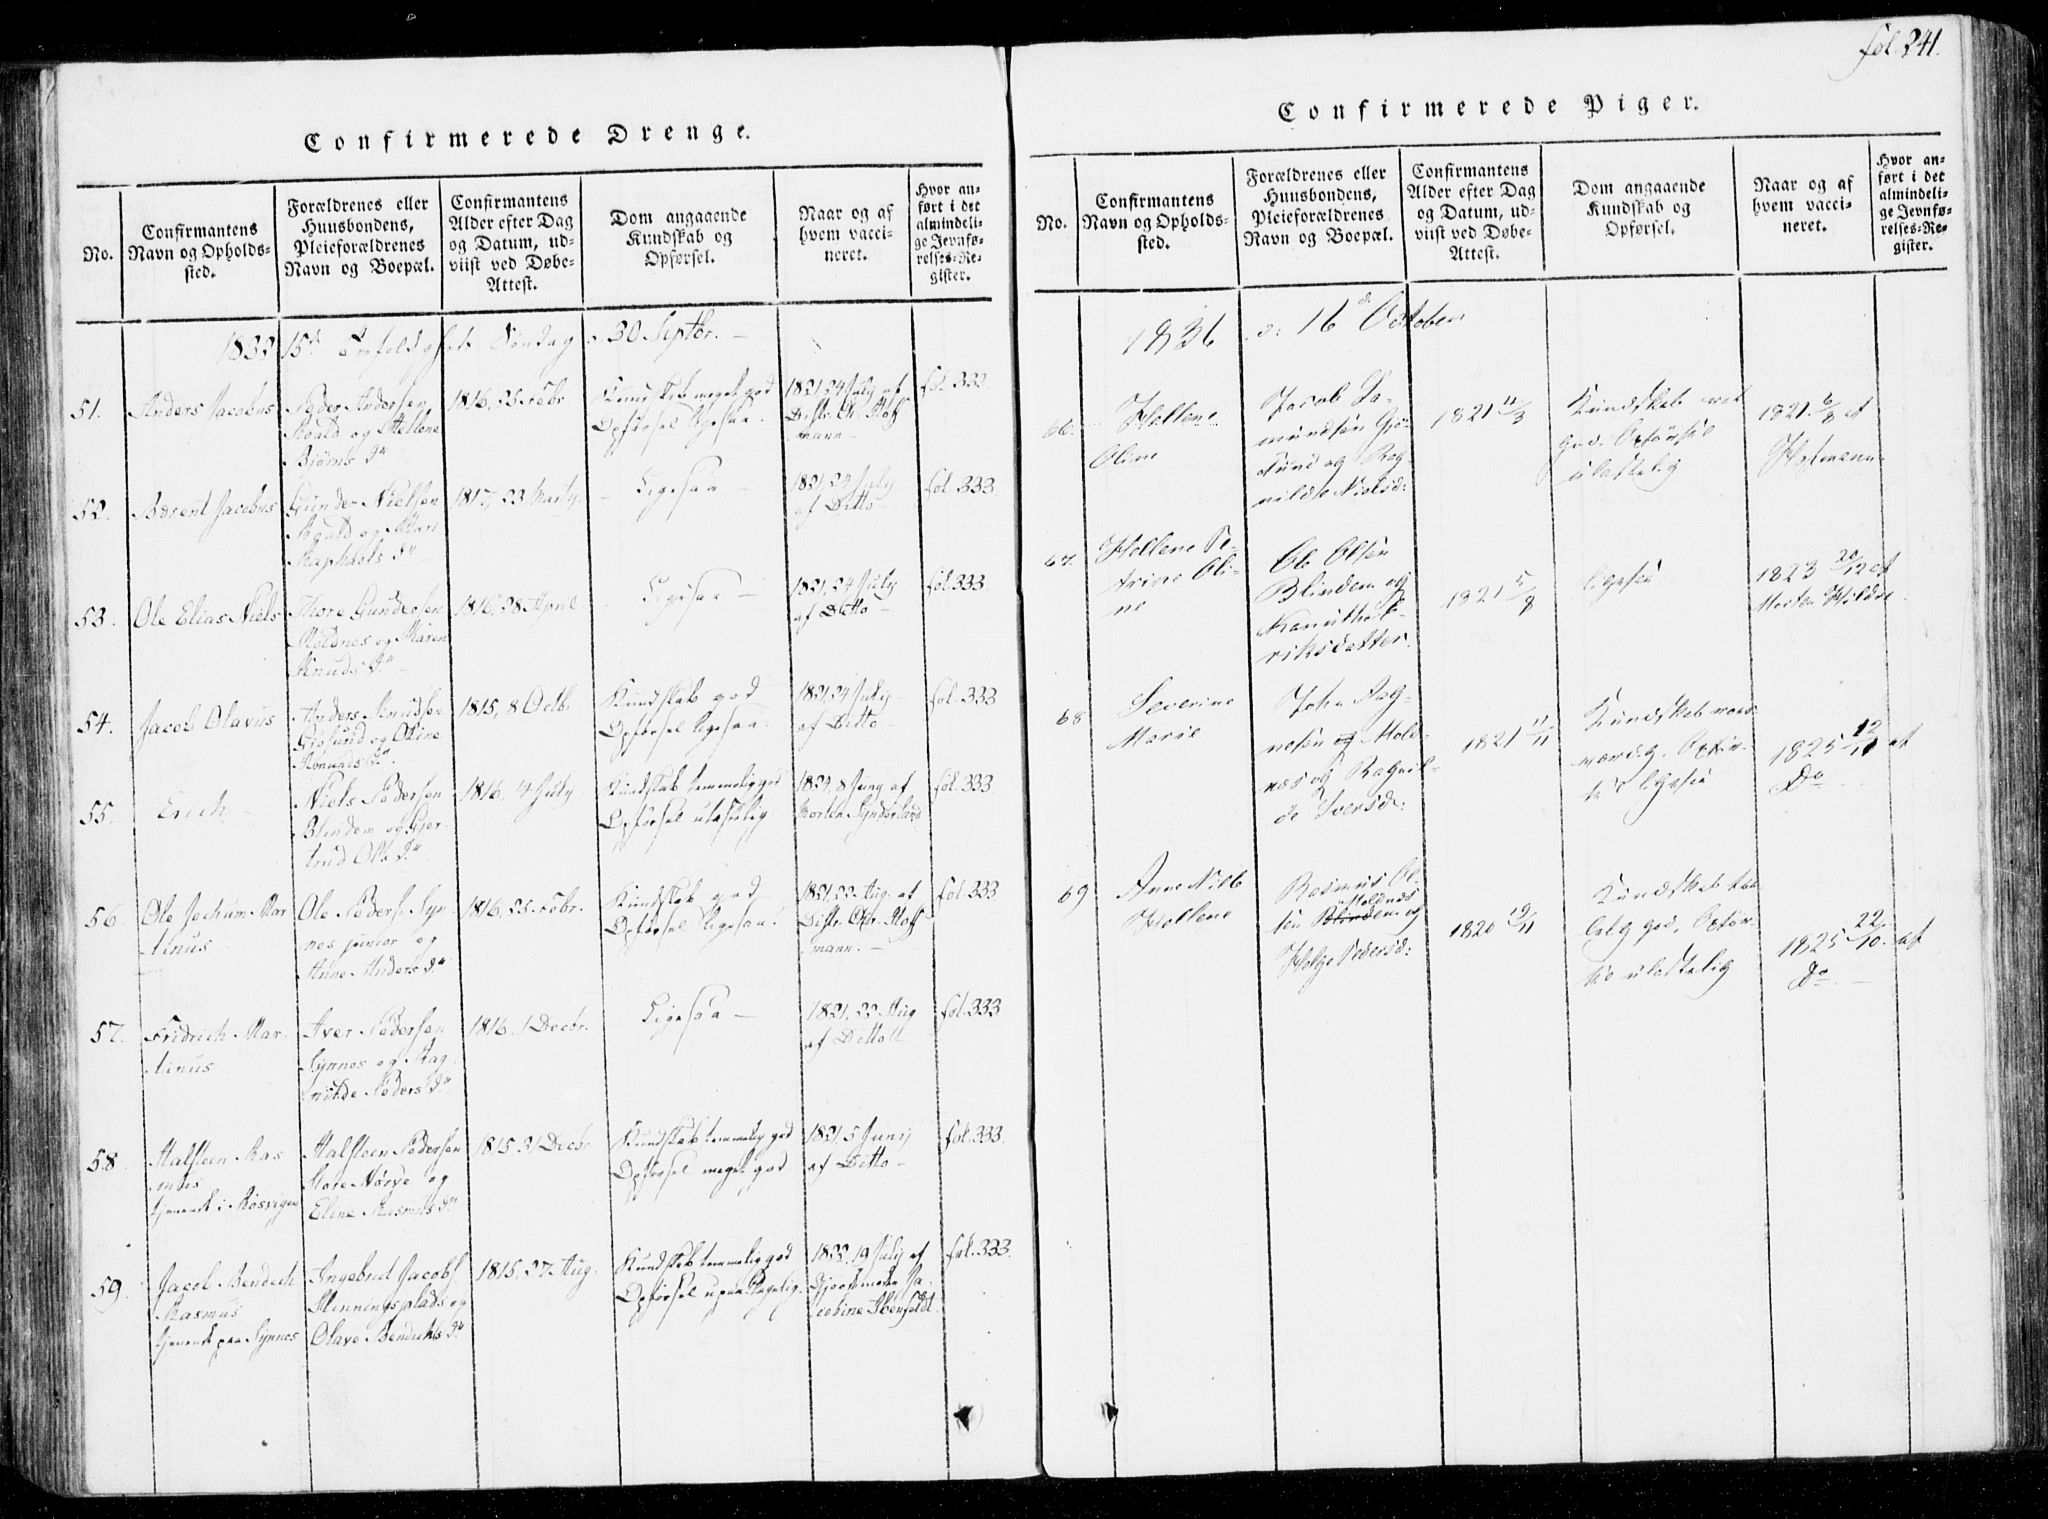 fol. 241.
Confirmerede Drenge.
No.
Confirmantens
Navn og Opholds-
sted.
Forældrenes eller
Huusbondens,
Pleieforældrenes
Navn og Boepæl.
Confirmantens
Alder efter Dag
og Datum, ud-
viist ved Døbe-
Attest.
Dom angaaende
Kundskab og
Opførsel.
Naar og af
hvem vacci-
neret.
Hvor an-
ført i det
almindeli-
ge Jevnfø-
relses-Re-
gister.
Søndag 30 Septbr.
51.
Anders Jacobus
Peder Andersen
Roald og Hellene
Bjørns Dr
1816, 25 Febr.
Kundskab meget god
Opførsel ligesaa.
1821 24 July af
Distr. Chr. Hoff
mann
fol. 333
52.
Berent Jacobus
Gunder Nielsen
Roald og Mari
Raphaels Dr
1817, 23 Marty
Ligesaa
1821 24 July
af Ditto
fol. 333
53.
Ole Elias Niels
Thore Gundersen
Moldnes og Maren
Knuds Dr
1816, 28 April
Ligesaa
1821, 24 July
af Ditto
fol. 333
54.
Jacob Olavus
Anders Knudsen
Gjøsund og Oline
Amunds Dr
1815, 8 Octb.
Kundskab god
Opførsel ligesaa.
1821 24 July
af Ditto
fol. 333
55.
Erich
Niels Pedersen
Blindem og Gjer-
trud Ols Dr
1816, 4 July
Kundskab temmelig god
Opførsel ulastelig
1824, 8 Juny af
Morten Synderland
fol. 333
56.
Ole Jochum Mar
tinus
Ole Peders. Syn-
nes junior og
Anne Anders Dr
1816, 25 Febr.
Kundskab god
Opførsel ligesaa.
1821, 22 Aug. af
Distr. Chr. Hoff
mann.
fol. 333
57.
Fridrich Mar-
tinus
Iver Pedersen
Synnes og Rag-
nilde Peders Dr
1816, 1 Decbr.
Ligesaa
1821, 22 Aug
af Ditto
fol. 333
58.
Halsteen Ras
mus
tjenende i Røsvigen
Halsteen Pedersen
Store Nørve og
Eline Rasmus Dr
1815 31 Decbr
Kundskab temmelig god
Opførsel meget god
1821, 5 Juny
af Ditto
fol. 333.
59.
Jacob Bendich
Rasmus
tjenende paa Synnes
Ingebret Jacobs.
Henningsplads og
Olave Bendichs Dr
1815, 27 Aug.
Kundskab temmelig god
Opførsel upaaklagelig
1822, 19 July af
Gjordemoder Ja-
cobine Ibenfeldt.
fol. 333.
Confirmerede Piger.
No.
Confirmantens
Navn og Opholds-
sted.
Forældrenes eller
Huusbondens,
Pleieforældrenes
Navn og Boepæl.
Confirmantens
Alder efter Dag
og Datum, ud-
viist ved Døbe-
Attest.
Dom angaaende
Kundskab og
Opførsel.
Naar og af
hvem vacci-
neret.
Hvor an-
ført i det
almindeli-
ge Jevnfø-
relses-Re-
gister.
1836 d: 16 October
66.
Hellene
Oline
Jacob Sa-
mundsen Gjø-
sund og Rag-
nilde Nielsd:
1821 11/3
Kundskab
god, Opførsel
ulastelig
1821 6/8 af
Hofmann
67.
Hellene Pe-
trine Oli-
ne
Ole Olsen
Blindem og
riksdatter.
1821 5/8
ligesaa
1823 20/12 af
Morten
68
Severine
Marie
John Aag-
nesen og Mold-
nes og Ragnil-
de Iversd:
1821 11/11
Kundskab
ligesaa
1825 12/11 af
Do
69
Anne Nille
Hellene
Rasmus Ol-
Moldnes
sen Blindem og
Helge Pedersd:
1820 19/11
Kundskab
god, Opfør-
sel ulastelig
1825 22/10. af
Do